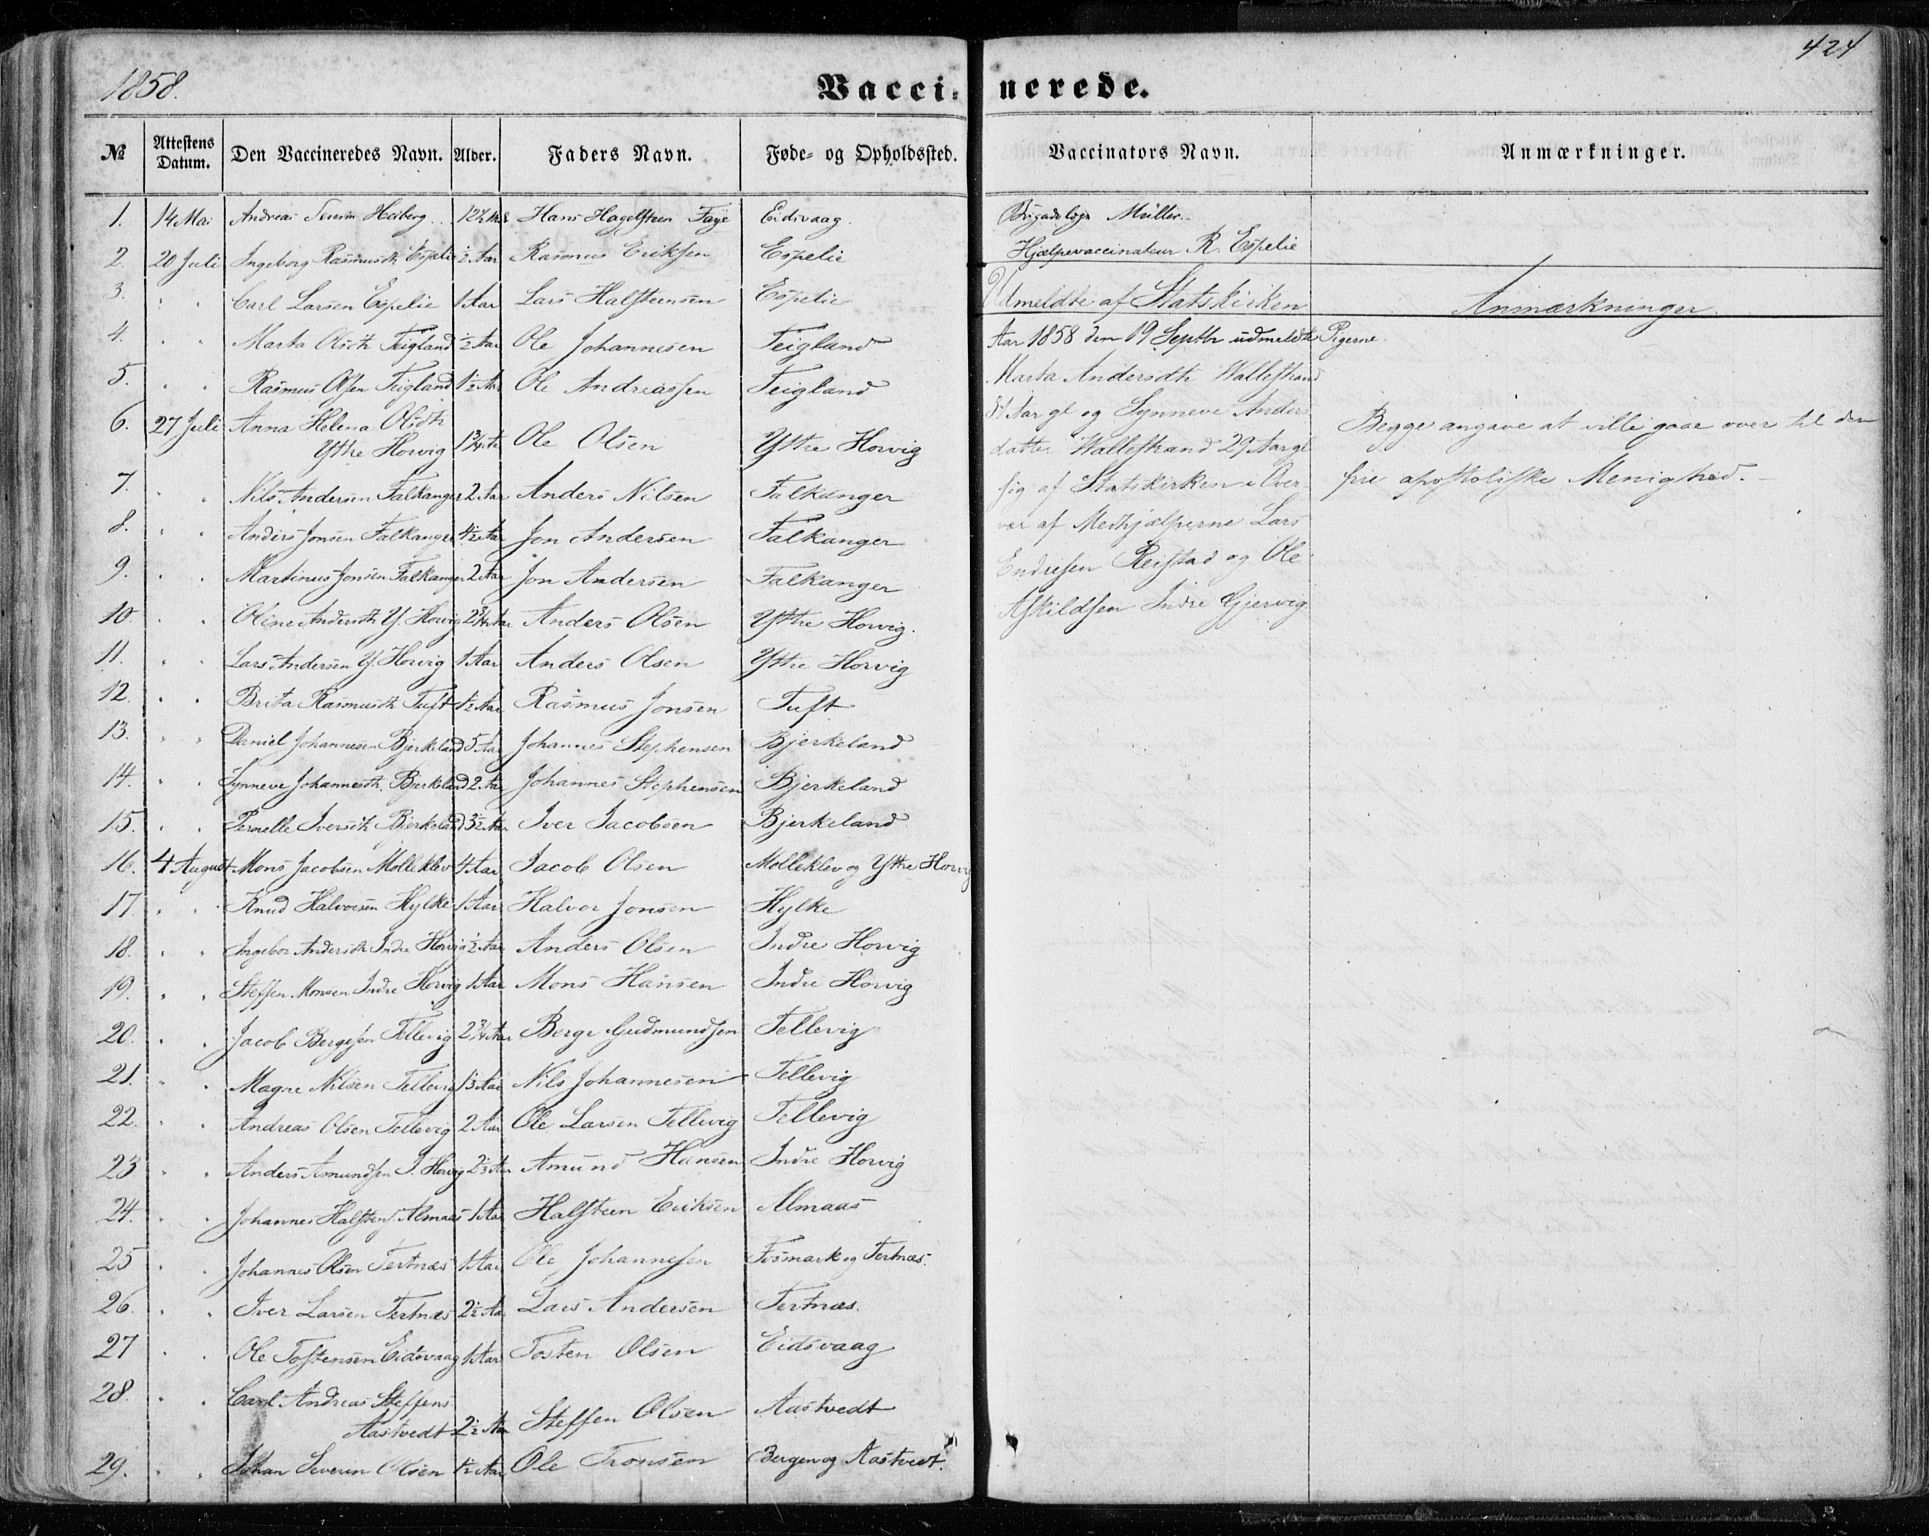 424
1858.
Vaccinerede.
№ Attestens Datum. Den Vaccineredes Navn. Alder. Faders Navn. Føde- og Opholdssted. Vaccinators Navn. Anmærkninger.
1. 14 Mai Andreas Heiberg Hans Hagelsteen Faye Eidsvaag. Brigadelæge Müller
2. 20 Juli Ingeborg Rasmusdtr Espelie ½ Aar Rasmus Eriksen Espelie Hjælpevaccinateur R. Espelie
3. " " Carl Larsen Espelie 1 Aar Lars Halsteensen Espelie
4. " " Marta Olsdtr Teigland ½ Aar Ole Johannesen Teigland
5. " " Rasmus Olsen Teigland 1½ Aar Ole Andreassen Teigland
6. 27 Juli Anna Helena Olsdtr
Ytre Horvig 1¾ Aar Ole Olsen Ytre Horvig
7. " " Nils Andersen Falkanger 2 Aar Anders Nilsen Falkanger
8. " " Anders Jonsen Falkanger 4½ Aar Jon Andersen Falkanger
9. " " Martinus Jonsen Falkanger 2 Aar Jon Andersen Falkanger
10. " " Oline Andersdtr Y. Horvig 2¾ Aar Anders Olsen Ytre Horvig.
11. " " Lars Andersen Y. Horvig 1 Aar Anders Olsen Ytre Horvig
12. " " Brita Rasmusdtr Tuft 1½ Aar Rasmus Jonsen Tuft
13. " " Daniel Johannesen Bjerkeland 5 Aar Johannes Stephensen Bjerkeland
14. " " Synneve Johannesdtr. Bjerkeland 2 Aar Johannes Stephensen Bjerkeland
15. " " Pernelle Iversdtr Bjerkeland 3½ Aar Iver Jacobsen Bjerkeland
16. 4 August Mons Jacobsen Molleklev 4 Aar Jacob Olsen Molleklev og Ytre Horvig
17. " " Knud Halvorsen Hylke 1 Aar Halvor Jonsen Hylke
18. " " Ingebor Andersdtr Indre Horvig ½ Aar Anders Olsen Indre Horvig
19. " " Steffen Monsen Indre Horvig 1 Aar Mons Hansen Indre Horvig
20. " " Jacob Bergesen Tellevig 2¾ Aar Berge Gudmundsen Tellevig
21. " " Magne Nilsen Tellevig Nils Johannesen Tellevig
22. " " Andreas Olsen Tellevig 2 Aar Ole Larsen Tellevig Tellevig
23 " " Anders Amundsen I. Horvig Amund Hansen Indre Horvig
24. " " Johannes Halstens. Almaas 1 Aar Halsteen Eriksen Almaas
25 " " Johannes Olsen Tertnæs 1 Aar Ole Johannesen Tertnæs.
26. " " Iver Larsen Tertnæs 2½ Aar Lars Andersen Tertnæs.
27 " " Ole Tostensen Eidsvaag 1 Aar Tosten Olsen Eidsvaag
28. " " Carl Andreas Steffens
Aastvedt 2½ Aar Steffen Olsen Aastvedt
29. " " Johan Severin Olsen 1½ Aar Ole Tronsen Bergen og Aastvedt.
Udmeldte af Statskirken Anmærkninger.
Aar 1858 den 19 Septbr udmeldte Pigerne
Marta Andersdtr Wallestrand
Aar gl og Synneve Anders
datter Wallestrand 29 Aar gl
sig af Statskirken i Over
vær af Medhjælperne Lars
Endresen Reistad og Ole
Askildsen Indre Gjervig.
Begge angave at ville gaae over til den
frie apostoliske Menighed.